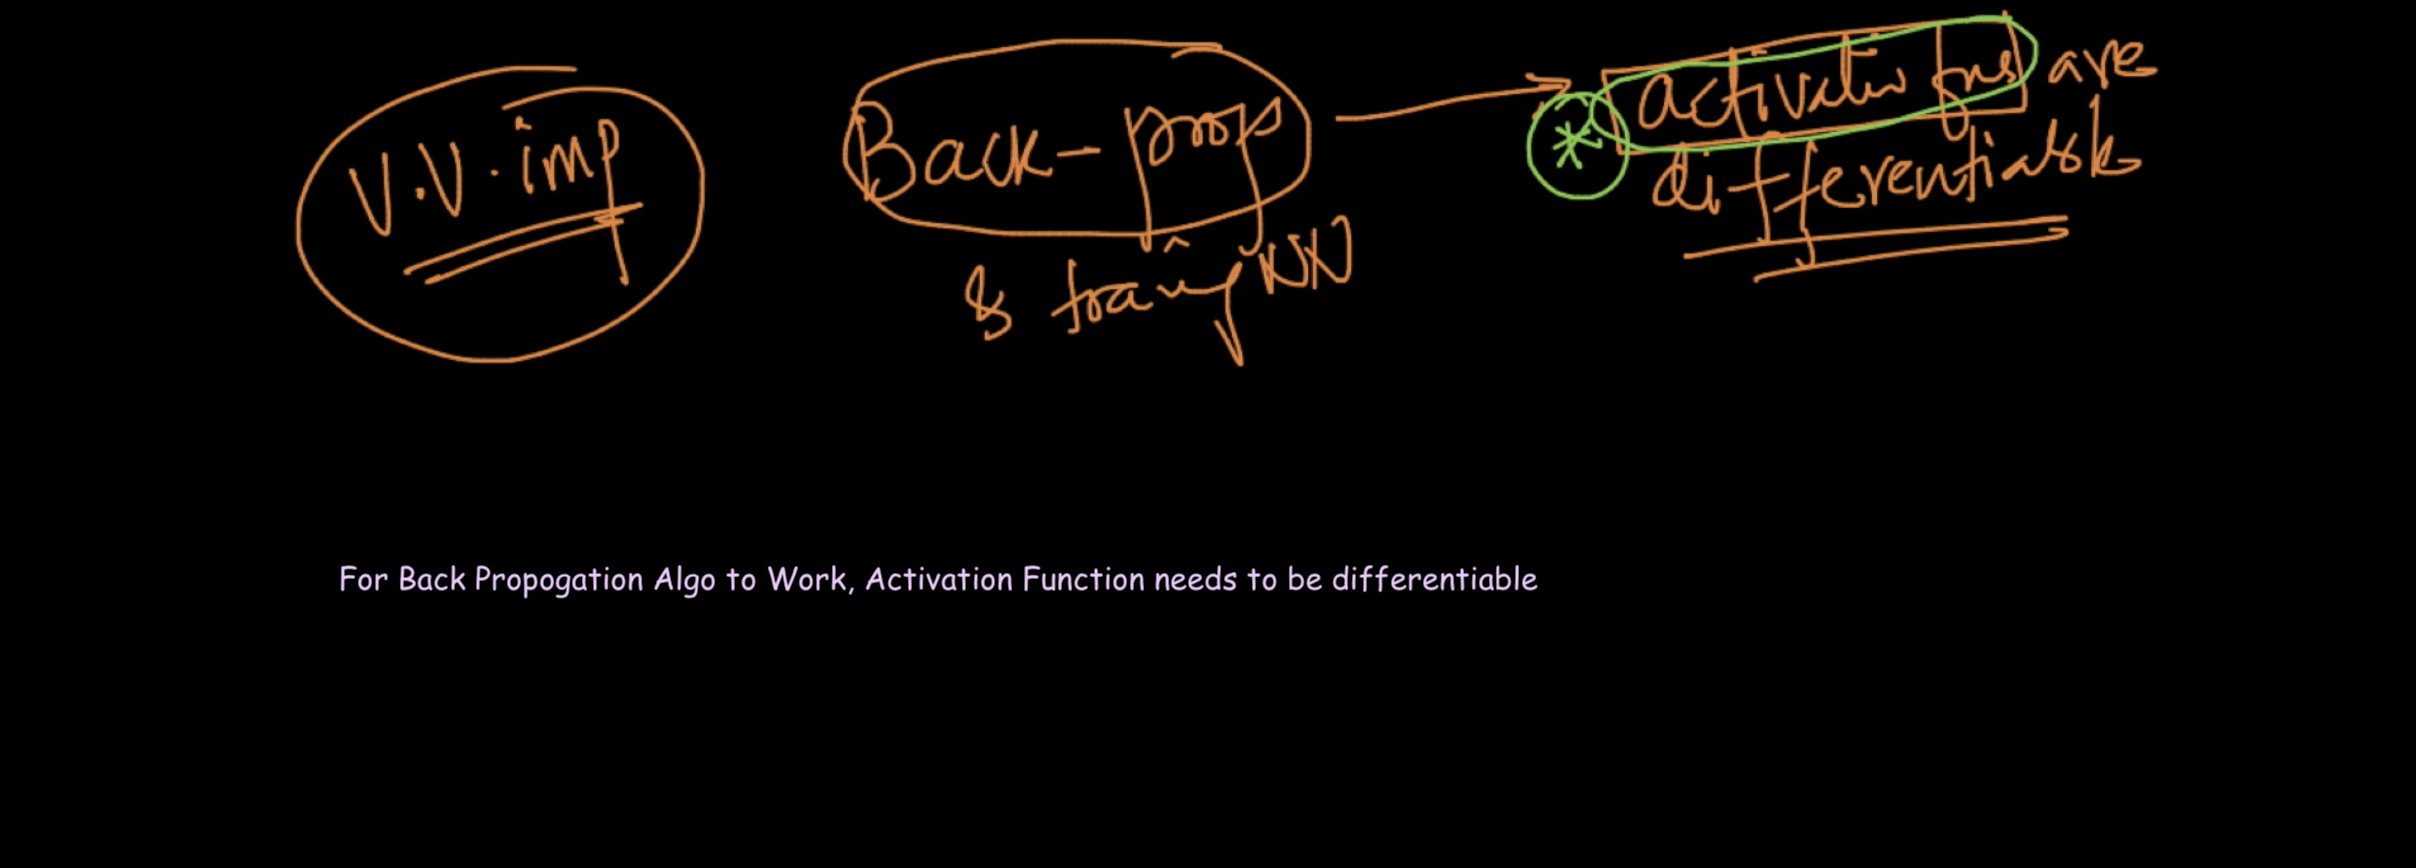 V.V.imp
Back-prop
& traing NN
* activatin fns are
differentiable
For Back Propogation Algo to Work, Activation Function needs to be differentiable